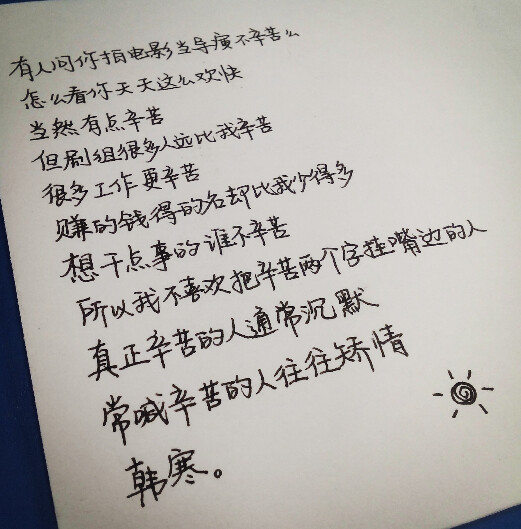 有人问你拍电影当导演不辛苦么
怎么看你天天这么欢快
当然有点辛苦
但剧组很多人远比我辛苦
很多工作更辛苦
赚的钱得的名却比我少得多
想干点事的谁不辛苦
所以我不喜欢把辛苦两个字挂嘴边的人
真正辛苦的人通常沉默
常喊辛苦的人往往矫情
韩寒。